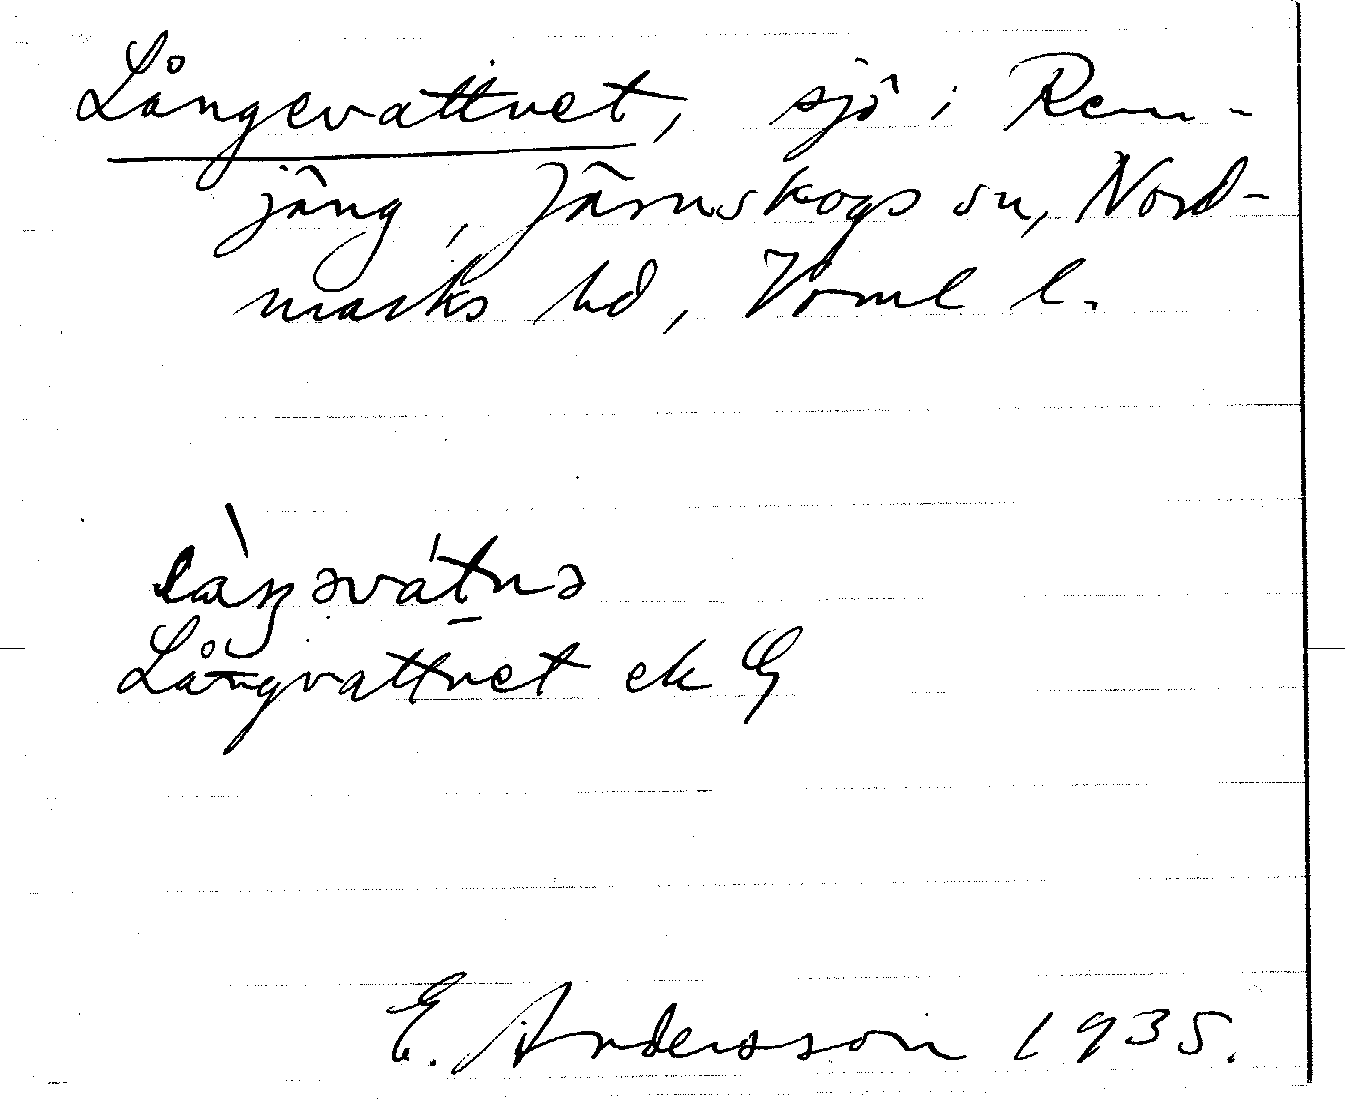 Långevattnet, sjö i Ren-
jäng, Järnskogs sn, Nord-
marks hd, Vrml l.
làŋəvátnə
Långvattnet ek G
E. Andersson 1935.